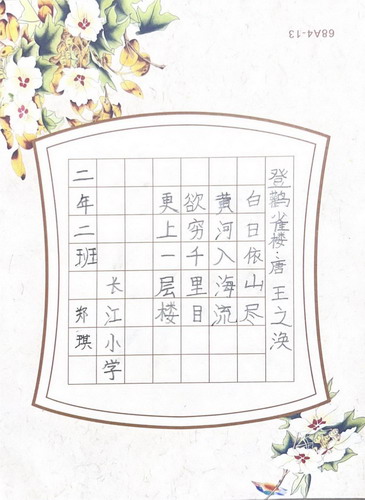 68A4-13
登鹳雀楼·唐 王之涣
白日依山尽
黄河入海流
欲穷千里目
更上一层楼
长江小学
二年二班 郑琪